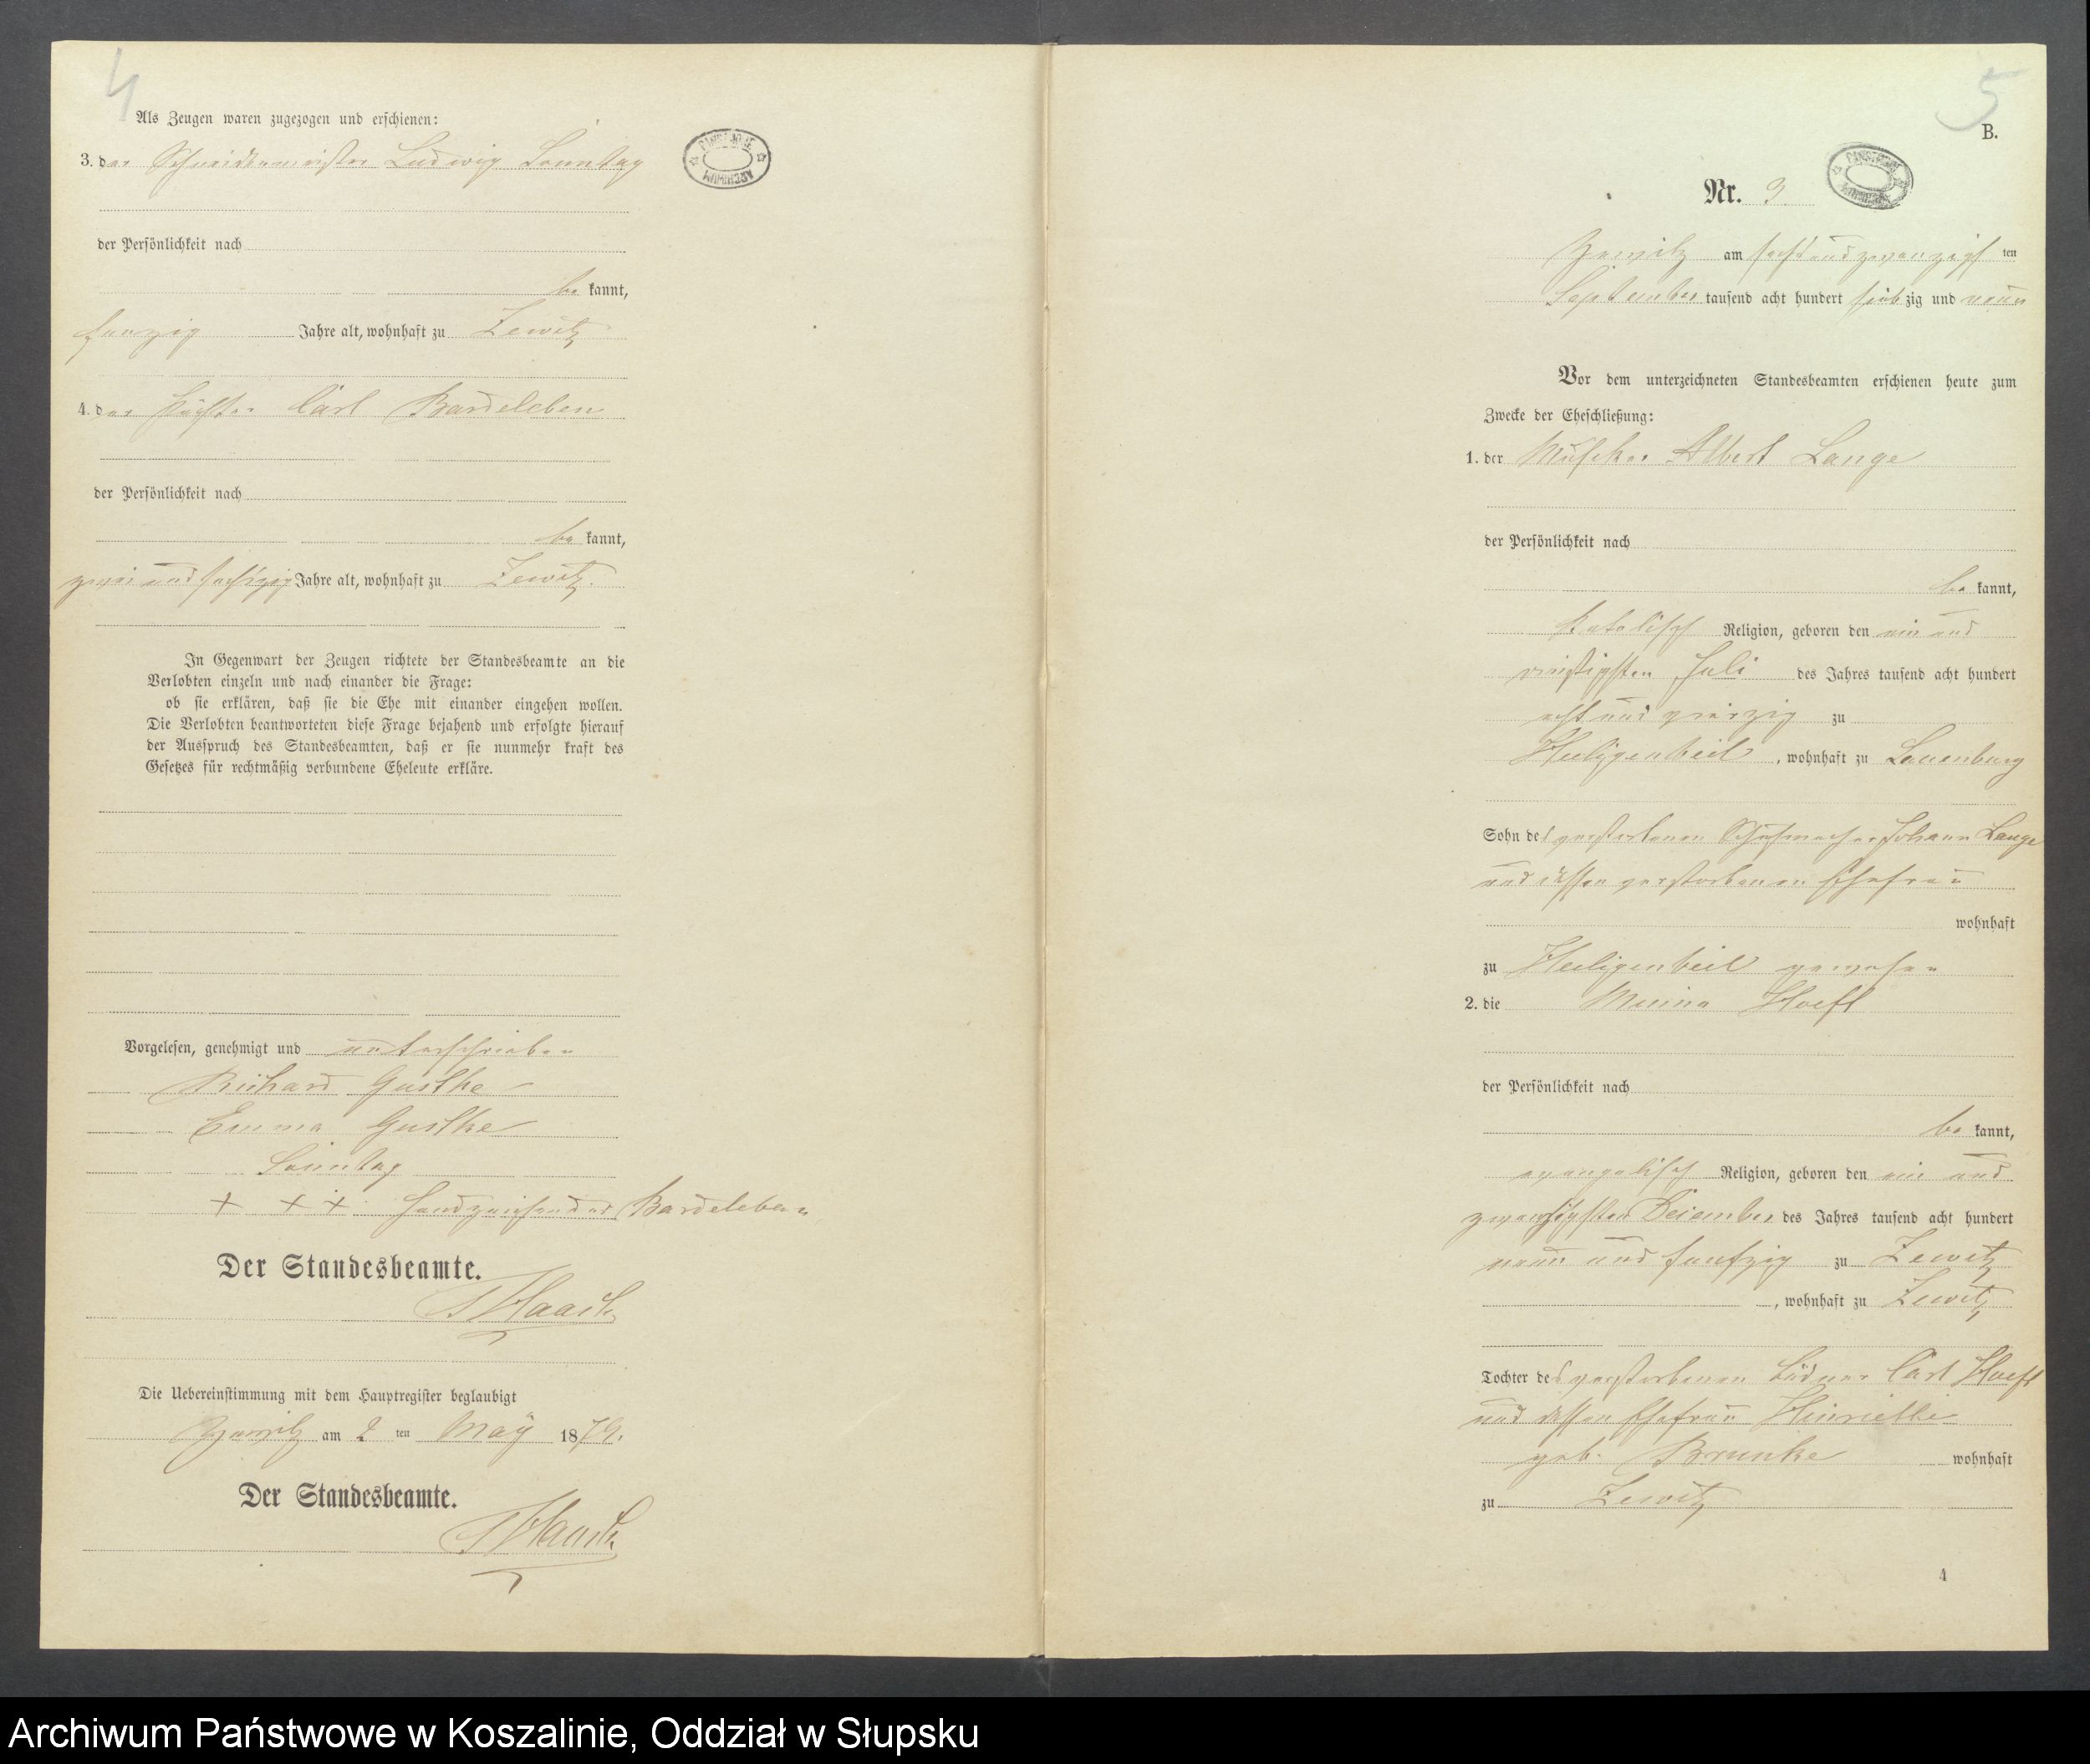 4
Als Zeugen waren zugezogen und erschienen:
3. der Schneidermeister Ludwig Sonntag
der Persönlichkeit nach
be kannt,
funzig Jahre alt, wohnhaft zu Zewitz
4. der Carl Bardeleben
der Persönlichkeit nach
be kannt,
zwei und sechszig Jahre alt, wohnhaft zu Zewitz.
In Gegenwart der Zeugen richtete der Standesbeamte an die
Verlobten einzeln und nach einander die Frage:
ob sie erklären, daß sie die Ehe mit einander eingehen wollen.
Die Verlobten beantworteten diese Frage bejahend und erfolgte hierauf
der Ausspruch des Standesbeamten, daß er sie nunmehr kraft des
Gesetzes für rechtmäßig verbundene Eheleute erkläre.
Vorgelesen, genehmigt und unterschrieben
Richard Gustke
Emma Gustke
Sonntag
+ + + Handzeichen des Bardeleben
Der Standesbeamte.
Die Uebereinstimmung mit dem Hauptregister beglaubigt
Zewitz am 2 ten May 1879.
Der Standesbeamte.
5
B.
Nr. 3
Zewitz am sechsundzwanzigsten
September tausend acht hundert siebzig und neun
Vor dem unterzeichneten Standesbeamten erschienen heute zum
Zwecke der Eheschließung:
1. der Musiker Albert Lange
der Persönlichkeit nach
be kannt,
katolisch Religion, geboren den ein und
dreißigsten Juli des Jahres tausend acht hundert
acht und vierzig zu
Heiligenbeil, wohnhaft zu Lauenburg
Sohn des verstorbenen Schuhmacher Johann Lange
und dessen verstorbenen Ehefrau
wohnhaft
zu Heiligenbeil gewesen
2. die Minna Hoeft
der Persönlichkeit nach
be kannt,
evangelisch Religion, geboren den ein und
zwanzigsten Dezember des Jahres tausend acht hundert
neun und funfzig zu Zewitz
, wohnhaft zu Zewitz
Tochter des verstorbenen Büdner Carl Hoeft
und dessen Ehefrau Henriette
geb. Brunke wohnhaft
zu Zewitz
4
Archiwum Państwowe w Koszalinie, Oddział w Słupsku